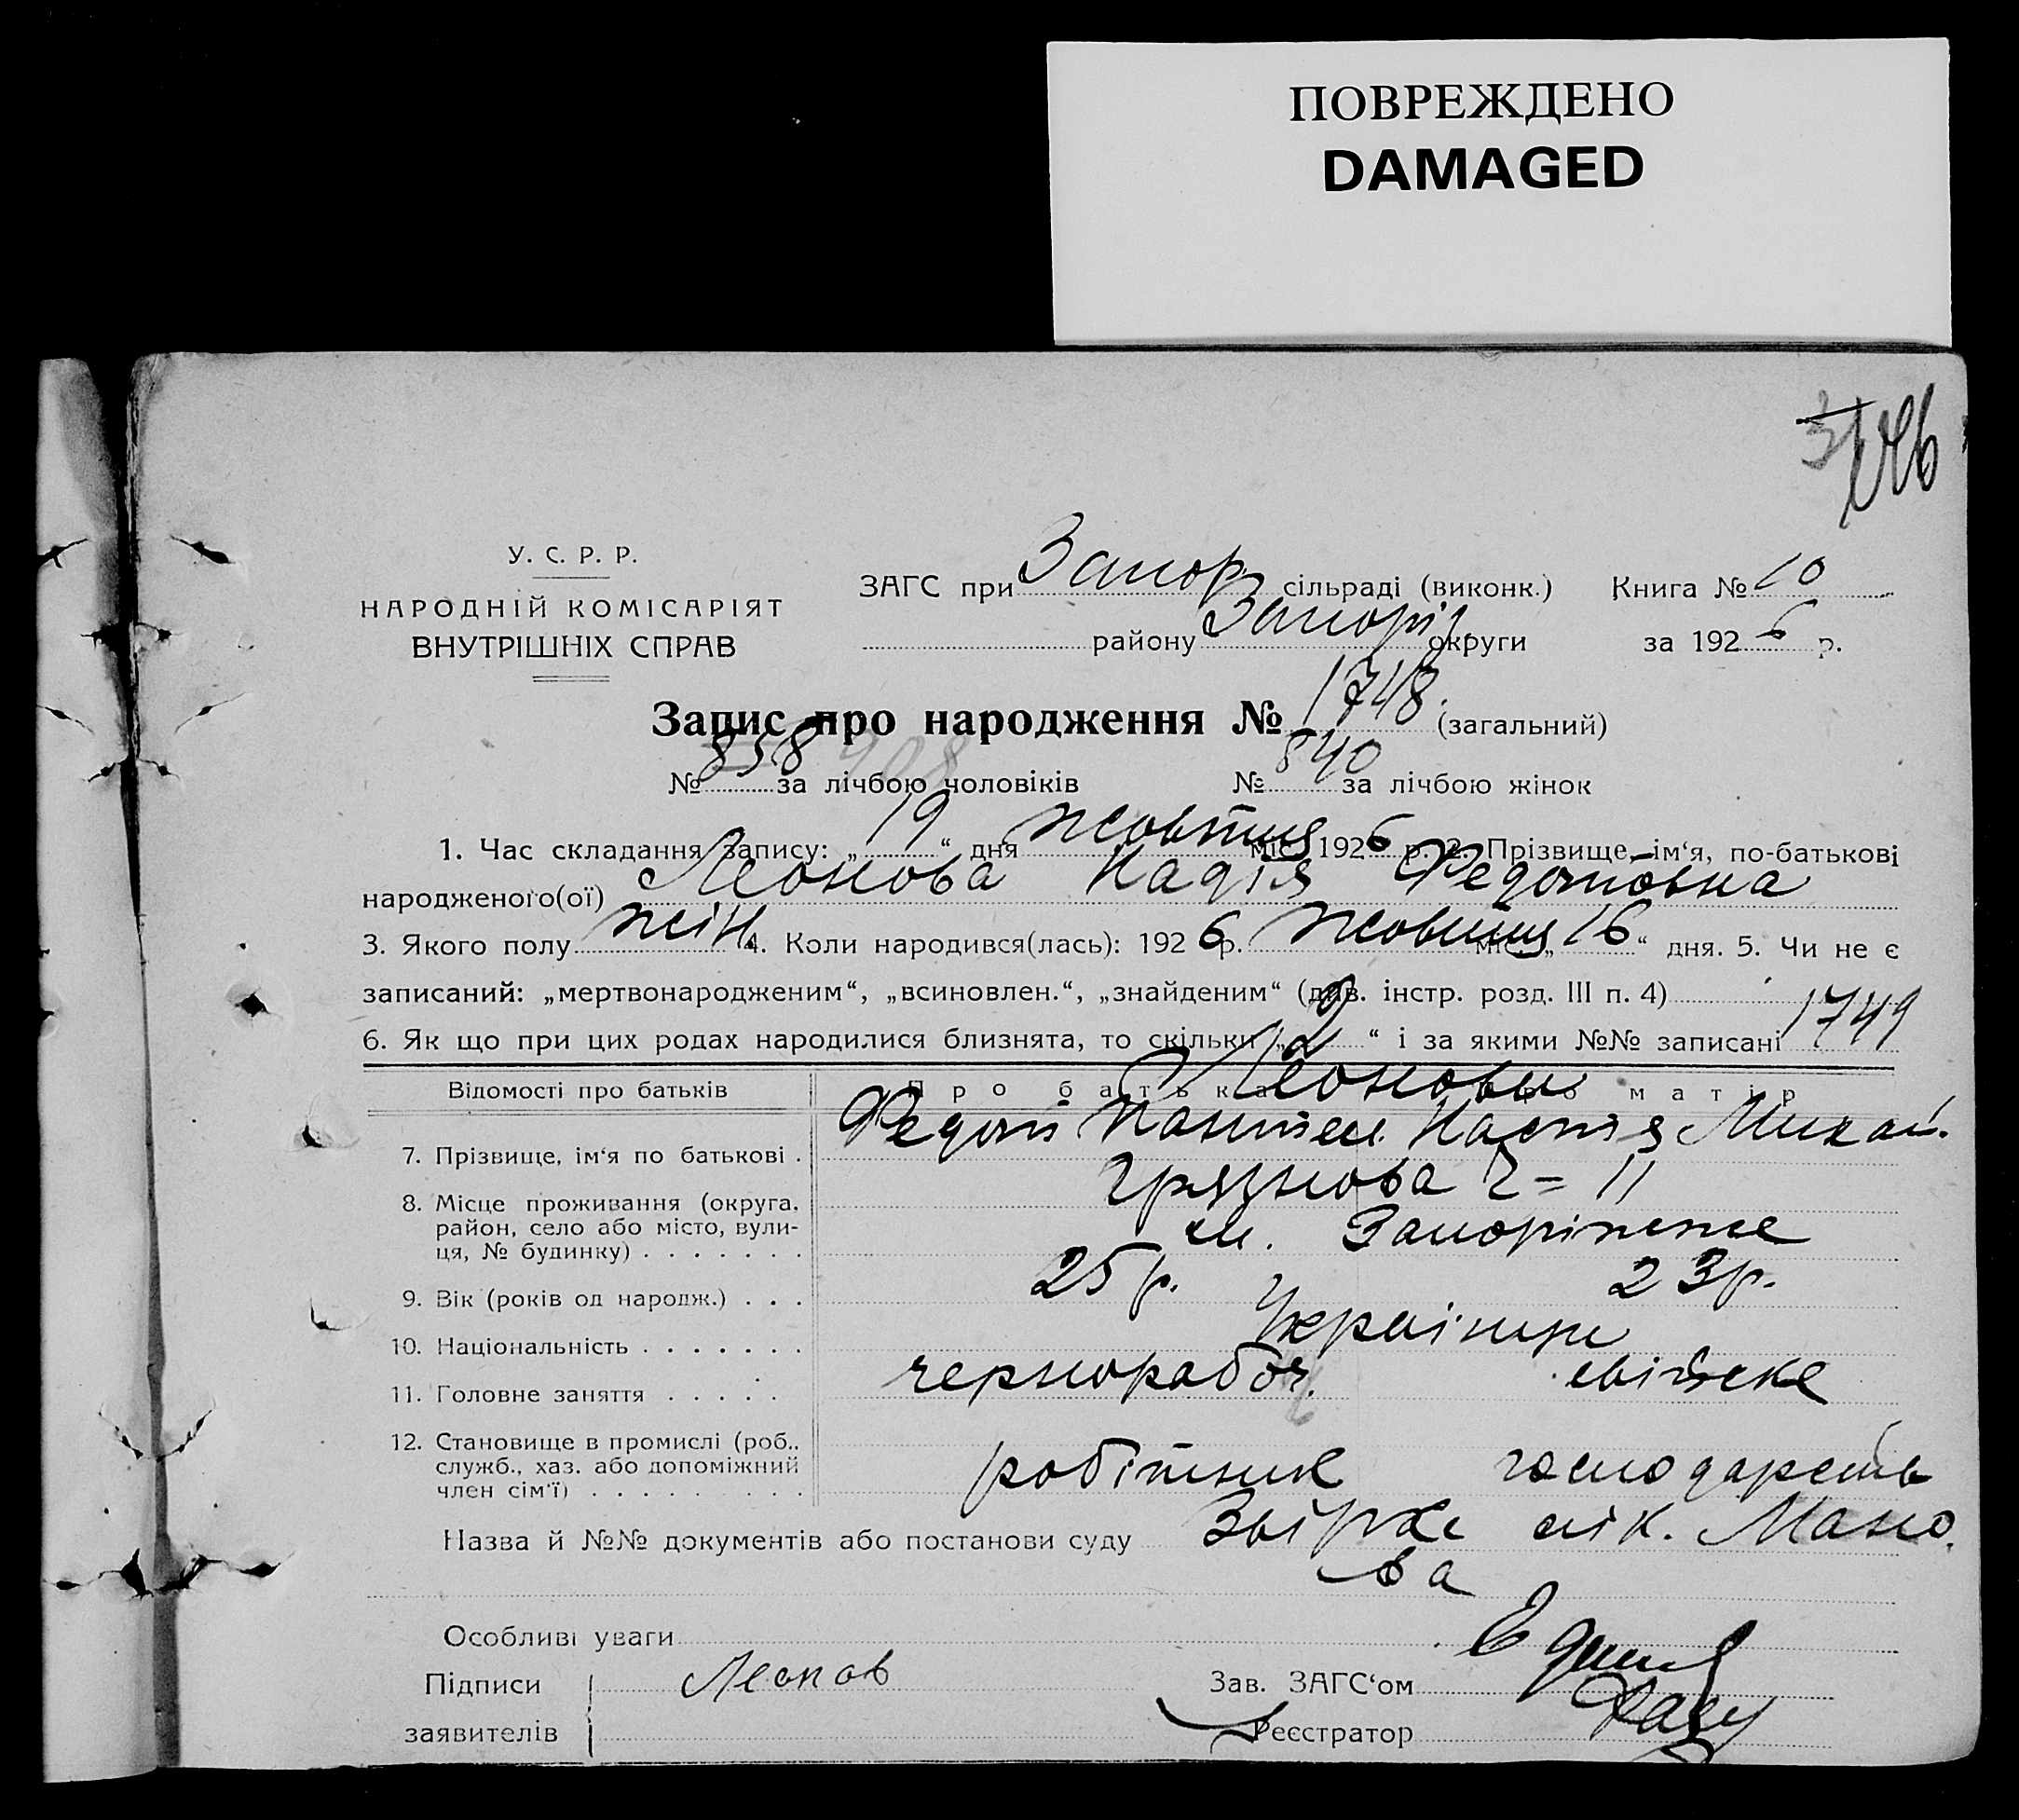 ПОВРЕЖДЕНО
DAMAGED
146
У. С. Р. Р.
НАРОДНІЙ КОМІСАРІЯТ
ВНУТРІШНІХ СПРАВ
ЗАГС при Запор. сільраді (виконк.) Книга № 10
району Запоріз округи за 1926 р.
Запис про народження № 1748. (загальний)
№ 858 за лічбою чоловіків № 840 за лічбою жінок
1. Час складання запису: „19“ дня жовтня міс. 1926 р. 2. Прізвище, ім‘я, по-батькові
народженого(ої) Леонова Надія Федотовна
3. Якого полу жін. 4. Коли народився(лась): 1926 р. жовтня міс. „16“ дня. 5. Чи не є
записаний: „мертвонародженим“, „всиновлен.“, „знайденим“ (див. інстр. розд. III п. 4)
6. Як що при цих родах народилися близнята, то скільки „2“ і за якими №№ записані 1749
Відомості про батьків Про батька Про матір
Леонови
7. Прізвище, ім‘я по батькові . Федот Пантел. Настя Михай.
8. Місце проживання (округа, район, село або місто, вулиця, № будинку) . . . . . . . Грязнова 2 = 11
м. Запоріжже
9. Вік (років од народж.) . . . 25 р. 23 р.
10. Національність . . . . . . . Українци
11. Головне заняття . . . . . чернорабоч. свійске
12. Становище в промислі (роб., служб., хаз. або допоміжний член сім‘ї) . . . . . . . . . робітник господарств
Назва й №№ документів або постанови суду лік. Мано.
ва
Особливі уваги
Підписи Леонов Зав. ЗАГС‘ом
заявителів Реєстратор